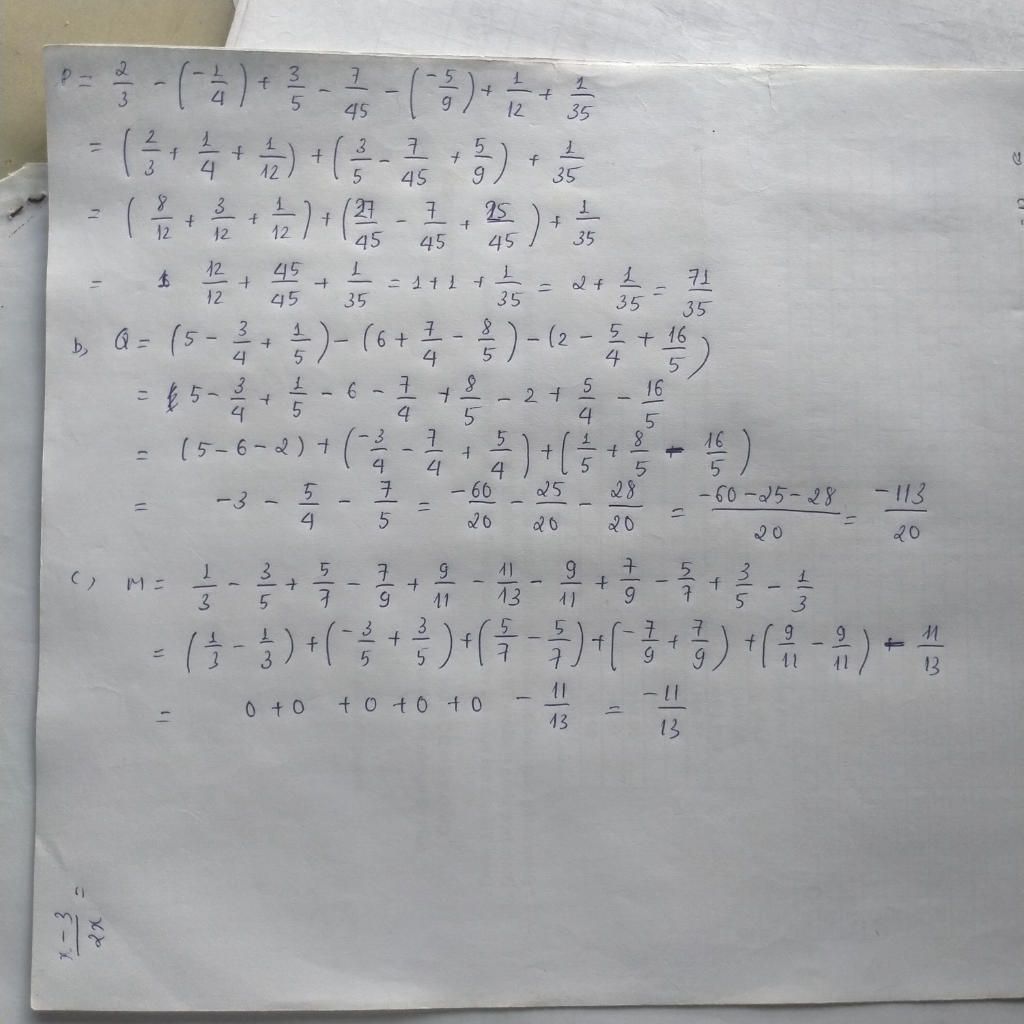 P = 2/3 - (-1/4) + 3/5 - 7/45 - (-5/9) + 1/12 + 1/35
= (2/3 + 1/4 + 1/12) + (3/5 - 7/45 + 5/9) + 1/35
= (8/12 + 3/12 + 1/12) + (27/45 - 7/45 + 25/45) + 1/35
= 12/12 + 45/45 + 1/35 = 1 + 1 + 1/35 = 2 + 1/35 = 71/35
b, Q = (5 - 3/4 + 1/5) - (6 + 7/4 - 8/5) - (2 - 5/4 + 16/5)
= 5 - 3/4 + 1/5 - 6 - 7/4 + 8/5 - 2 + 5/4 - 16/5
= (5 - 6 - 2) + (-3/4 - 7/4 + 5/4) + (1/5 + 8/5 - 16/5)
= -3 - 5/4 - 7/5 = -60/20 - 25/20 - 28/20 = (-60 - 25 - 28)/20 = -113/20
c, M = 1/3 - 3/5 + 5/7 - 7/9 + 9/11 - 11/13 - 9/11 + 7/9 - 5/7 + 3/5 - 1/3
= (1/3 - 1/3) + (-3/5 + 3/5) + (5/7 - 5/7) + (-7/9 + 7/9) + (9/11 - 9/11) - 11/13
= 0 + 0 + 0 + 0 + 0 - 11/13 = -11/13
(x - 3)/2x =